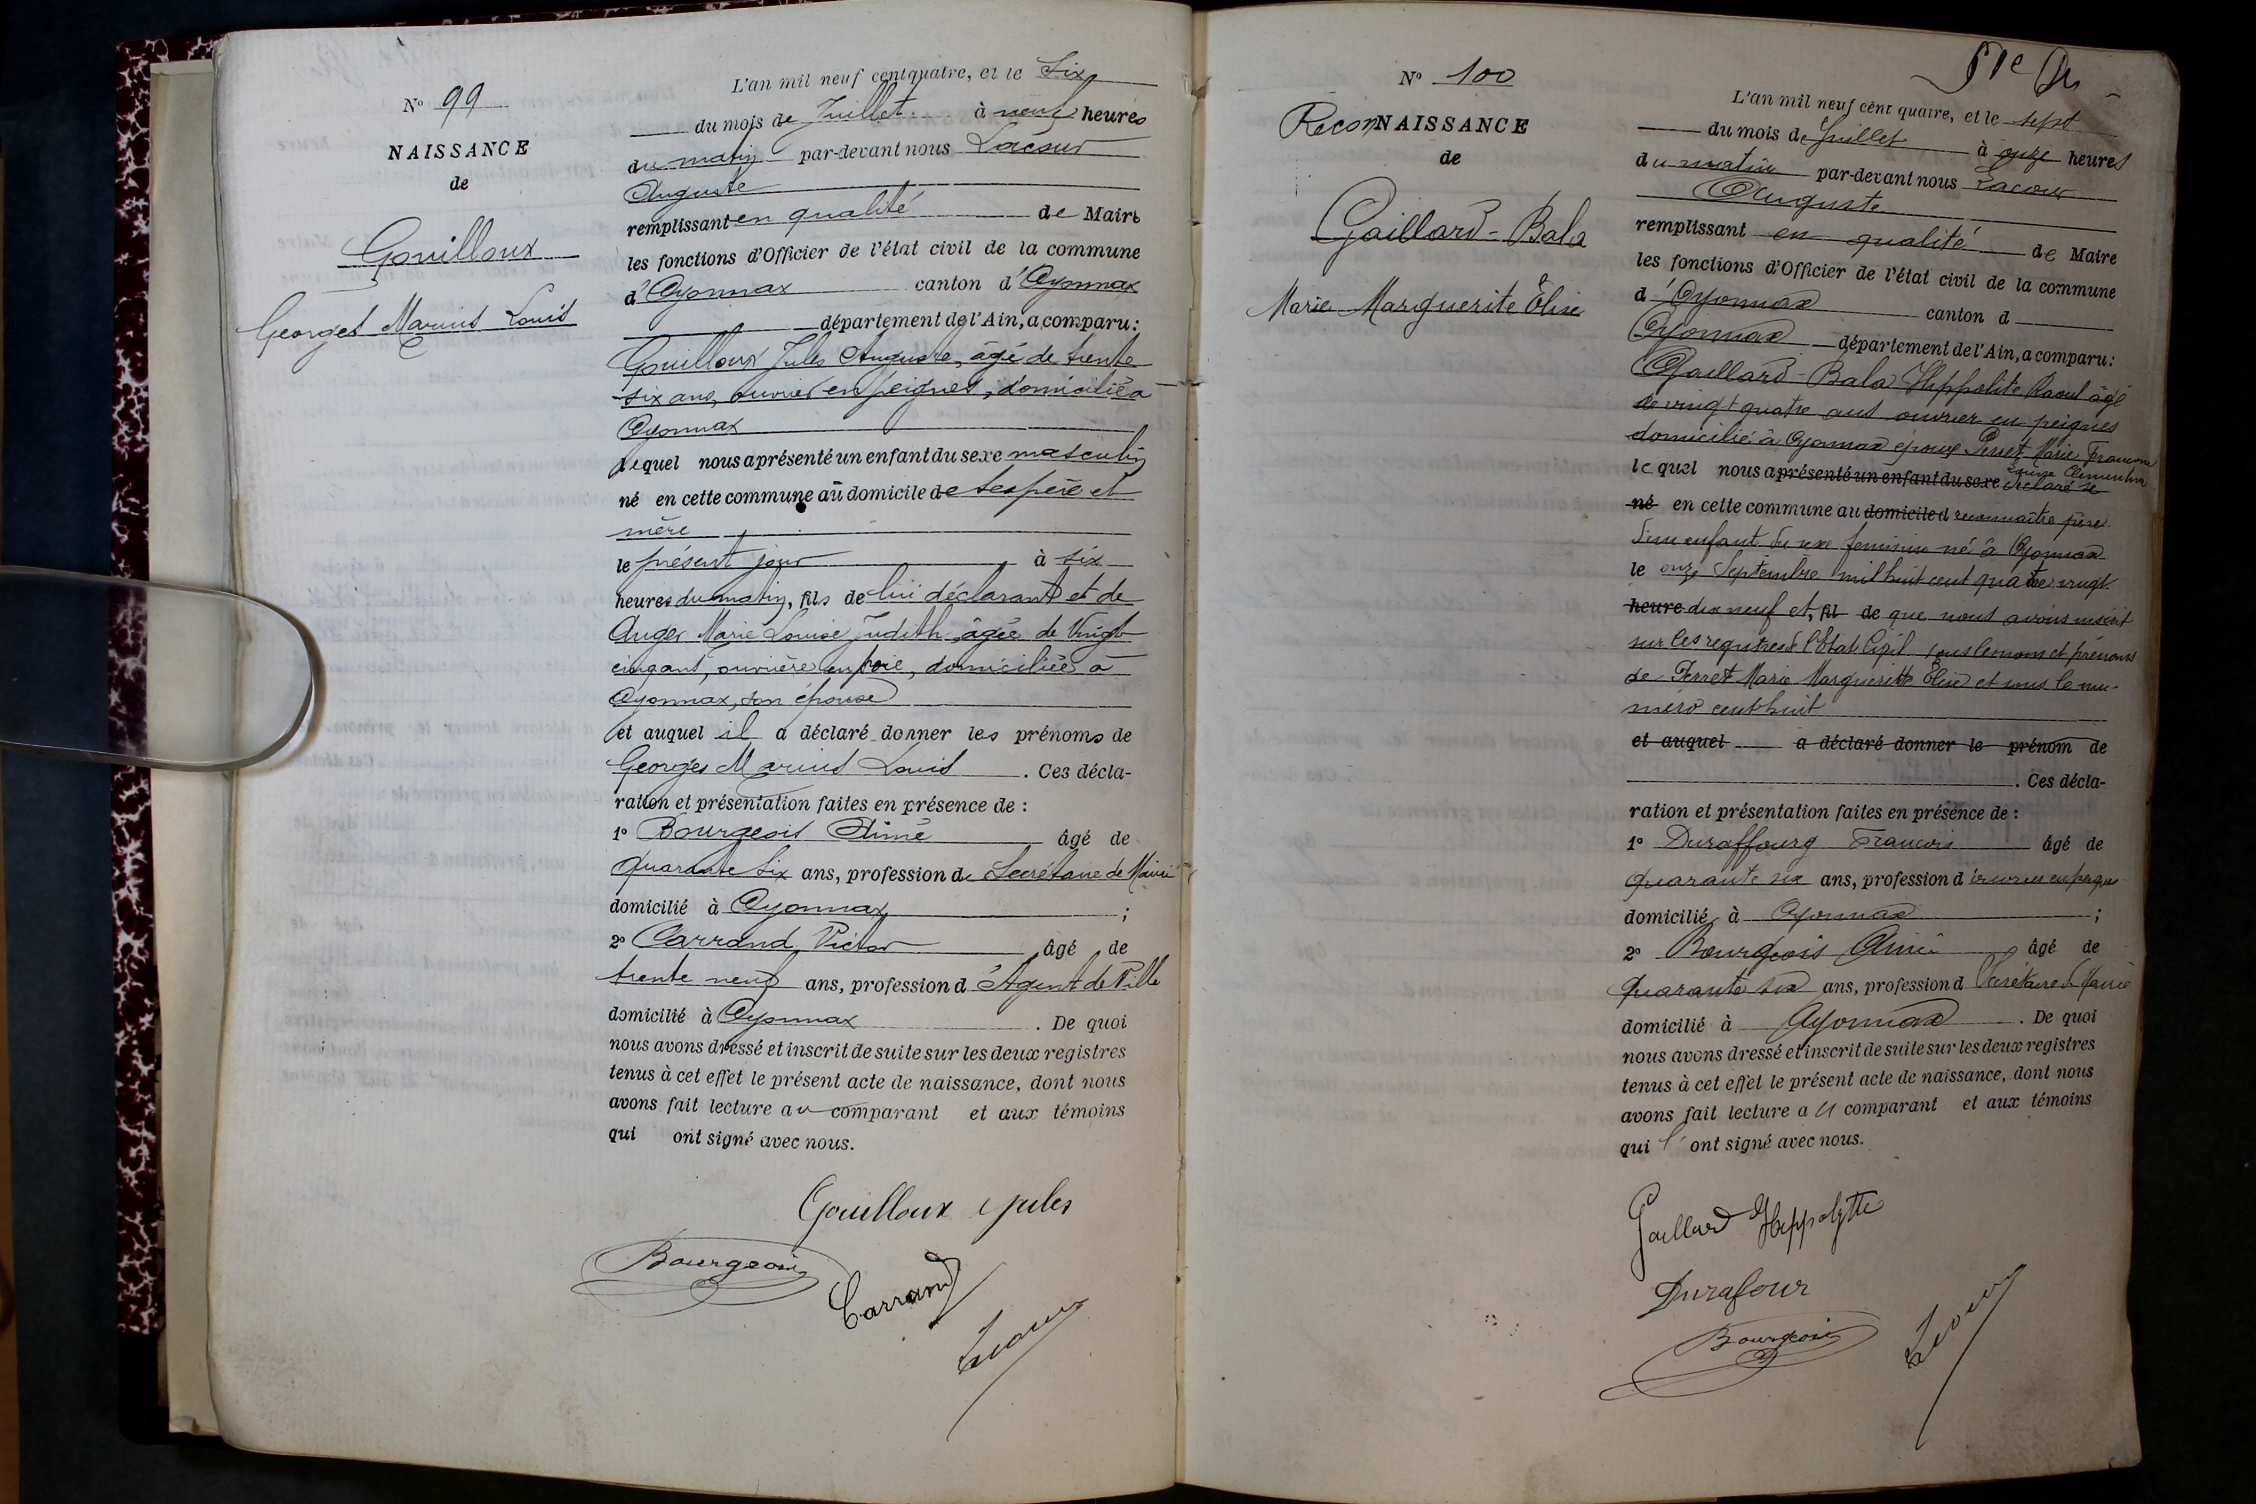 N° 99
NAISSANCE
de
Gouilloux
Georges Marius Louis
L'an mil neuf cent quatre, et le Six
du mois de Juillet à neuf heures
du matin par-devant nous Lacour
Auguste
remplissant en qualité de Maire
les fonctions d'Officier de l'état civil de la commune
d'Oyonnax canton d'Oyonnax
département de l'Ain, a comparu:
Gouilloux Jules Auguste, âgé de trente
six ans, ouvrier en peignes, domicilié à
Oyonnax
lequel nous a présenté un enfant du sexe masculin
né en cette commune au domicile de ses père et
mère
le présent jour à six
heures du matin, fils de lui déclarant et de
Auger Marie Louise Judith, âgée de Vingt
cinq ans, ouvrière en soie, domiciliée à
Oyonnax, son épouse
et auquel il a déclaré donner les prénoms de
Georges Marius Louis. Ces décla-
ration et présentation faites en présence de :
1° Bourgeois Aimé âgé de
quarante six ans, profession de Secrétaire de Mairie
domicilié à Oyonnax ;
2° Carrand Victor âgé de
trente neuf ans, profession d'Agent de Ville
domicilié à Oyonnax. De quoi
nous avons dressé et inscrit de suite sur les deux registres
tenus à cet effet le présent acte de naissance, dont nous
avons fait lecture au comparant et aux témoins
qui ont signé avec nous.
Gouilloux Jules
Bourgeois
Carrand
Lacour
N° 100
ReconNAISSANCE
de
Gaillard-Bala
Marie Marguerite Élise
L'an mil neuf cent quatre, et le sept
du mois de Juillet à onze heures
du matin par-devant nous Lacour
Auguste
remplissant en qualité de Maire
les fonctions d'Officier de l'état civil de la commune
d'Oyonnax canton d
Oyonnax département de l'Ain, a comparu:
Gaillard-Bala Hippolite Raoul âgé
de vingt quatre ans ouvrier en peignes
domicilié à Oyonnax époux Perret Marie Francine
Clémentine
lequel nous a présenté un enfant du sexe déclaré se
né en cette commune au domicile d reconnaître père
d'un enfant du sexe féminin né à Oyonnax
le onze Septembre mil huit cent quatre vingt
heure dix neuf et, fil de que nous avons inscrit
sur les registres de l'Etat Civil sous les nom et prénoms
de Perret Marie Marguerite Élise et sous le nu-
méro cent huit
et auquel a déclaré donner le prénom de
. Ces décla-
ration et présentation faites en présence de :
1° Duraffourg Francois âgé de
quarante six ans, profession d'ouvrier en peignes
domicilié à Oyonnax ;
2° Bourgeois Aimé âgé de
quarante six ans, profession d Secrétaire de Mairie
domicilié à Oyonnax. De quoi
nous avons dressé et inscrit de suite sur les deux registres
tenus à cet effet le présent acte de naissance, dont nous
avons fait lecture au comparant et aux témoins
qui l' ont signé avec nous.
Gaillard Hippolytte
Durafour
Bourgeois
Lacour